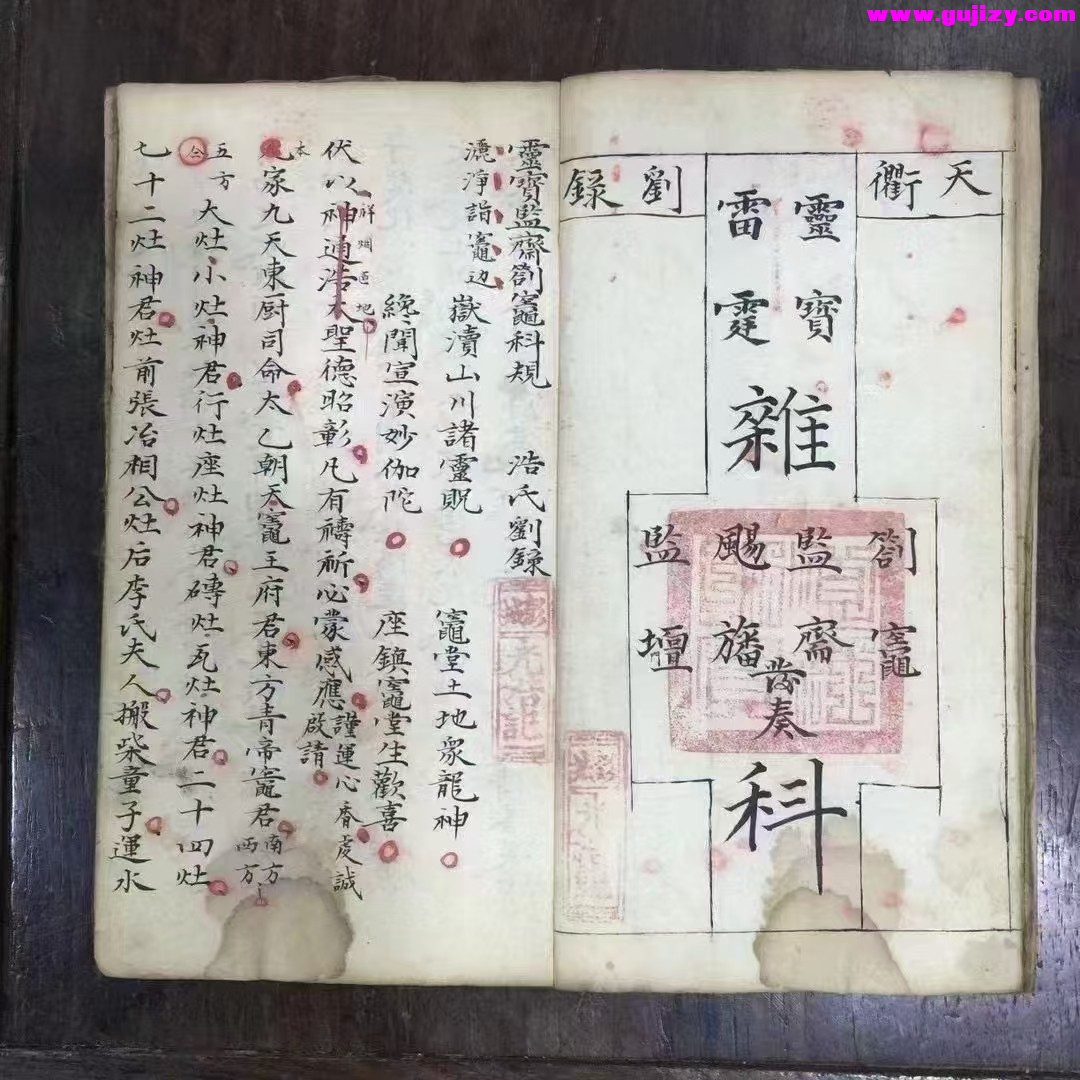 www.gujizy.com
天衢
劉錄
靈寶
雷霆
雜
劄竈
監齋
颺旛
發奏
監壇
科
靈寶監齋劄竈科規 浩氏劉錄
灑淨詣竈边 嶽瀆山川諸靈貺 竈堂土地眾龍神
纔聞宣演妙伽陀 座鎮竈堂生歡喜
伏以神通浩大聖德昭彰凡有禱祈必蒙感應謹運心香虔誠啟請
祥烟匝地
本家九天東厨司命太乙朝天竈王府君東方青帝竈君南方西方
五方大灶小灶神君行灶座灶神君磚灶瓦灶神君二十四灶
七十二灶神君灶前張冶相公灶后李氏夫人搬柴童子運水